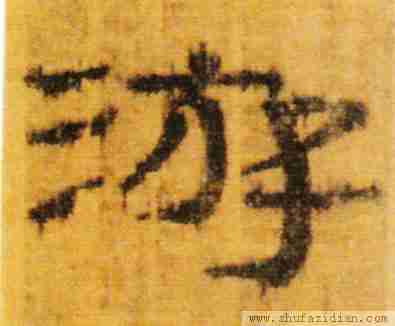 游
www.shufazidian.com